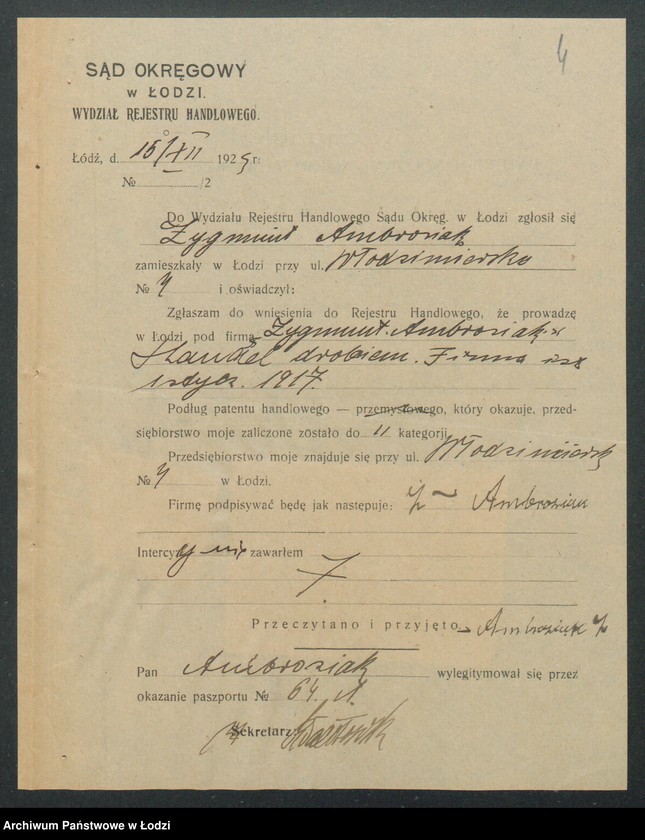 4
SĄD OKRĘGOWY
w ŁODZI.
WYDZIAŁ REJESTRU HANDLOWEGO.
Łódź, d. 15/XII 1925 r:
№ /2
Do Wydziału Rejestru Handlowego Sądu Okręg. w Łodzi zgłosił się
Zygmunt Ambroziak
zamieszkały w Łodzi przy ul. Włodzimierska
№ 4 i oświadczył:
Zgłaszam do wniesienia do Rejestru Handlowego, że prowadzę
w Łodzi pod firmą „Zygmunt Ambroziak"
Handel drobiem. Firma istn.
1 stycz. 1917.
Podług patentu handlowego — przemysłowego, który okazuje, przed-
siębiorstwo moje zaliczone zostało do II kategorji
Przedsiębiorstwo moje znajduje się przy ul. Włodzimiersk
№ 4 w Łodzi.
Firmę podpisywać będę jak następuje: Ambroziak
Intercyzy nie zawarłem
Przeczytano i przyjęto Ambroziak
Pan Ambroziak wylegitymował się przez
okazanie paszportu № 64.
Sekretarz:
Archiwum Państwowe w Łodzi